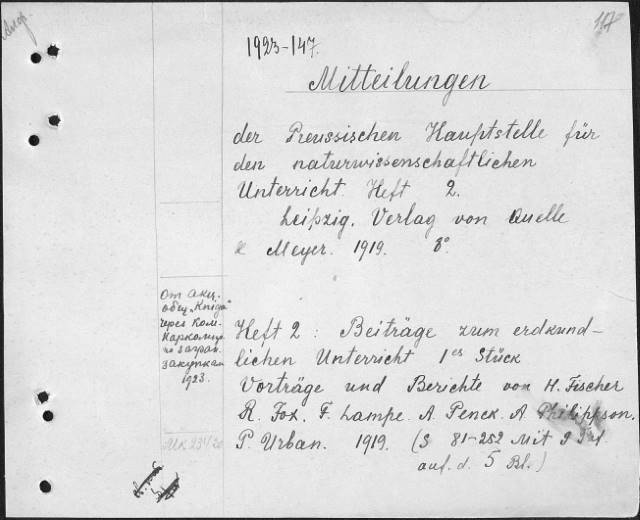 1923-147.
117
Mitteilungen
der Preussischen Hauptstelle für
den naturwissenschaftlichen
Unterricht Heft 2.
Leipzig. Verlag von Quelle
& Meyer. 1919. 8°
От акц.
общ. „Книга"
через Ком.
Наркомпр.
по загран.
закупкам
1923.
Heft 2 : Beiträge zum erdkund-
lichen Unterricht 1es Stück
Vorträge und Berichte von H. Fischer
R. Fox. F. Lampe. A Penck. A Philippson.
P. Urban. 1919. (S 81-252 Mit 9 Taf
auf. d. 5 Bl.)